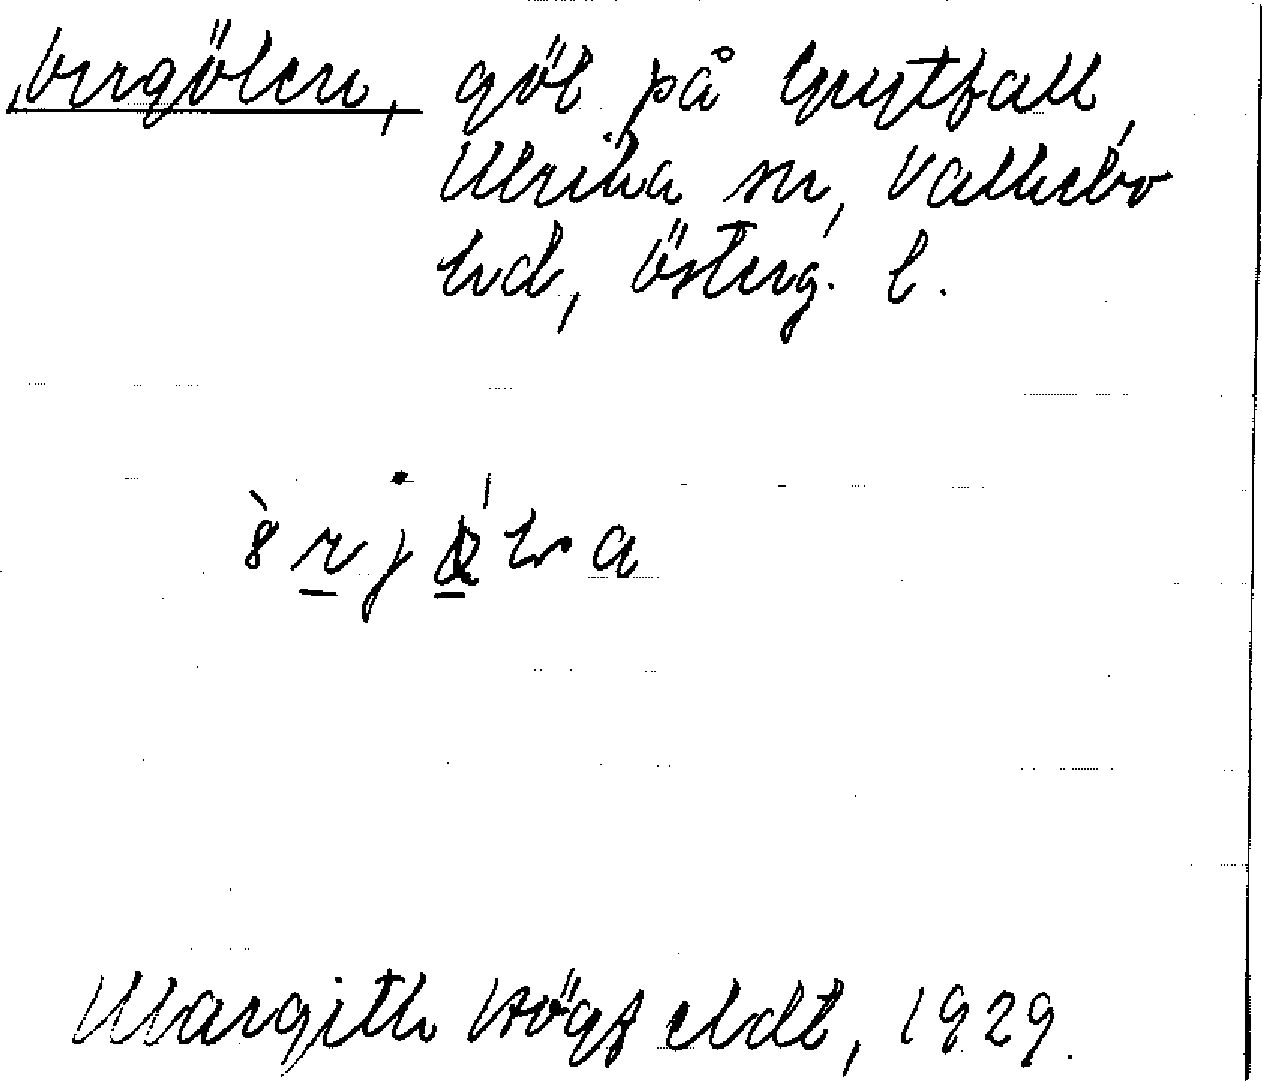 Orrgölen, göl på Grytfall,
Ulrika sn, Valkebo
hd, Österg. l.
Margith Högfeldt, 1929.